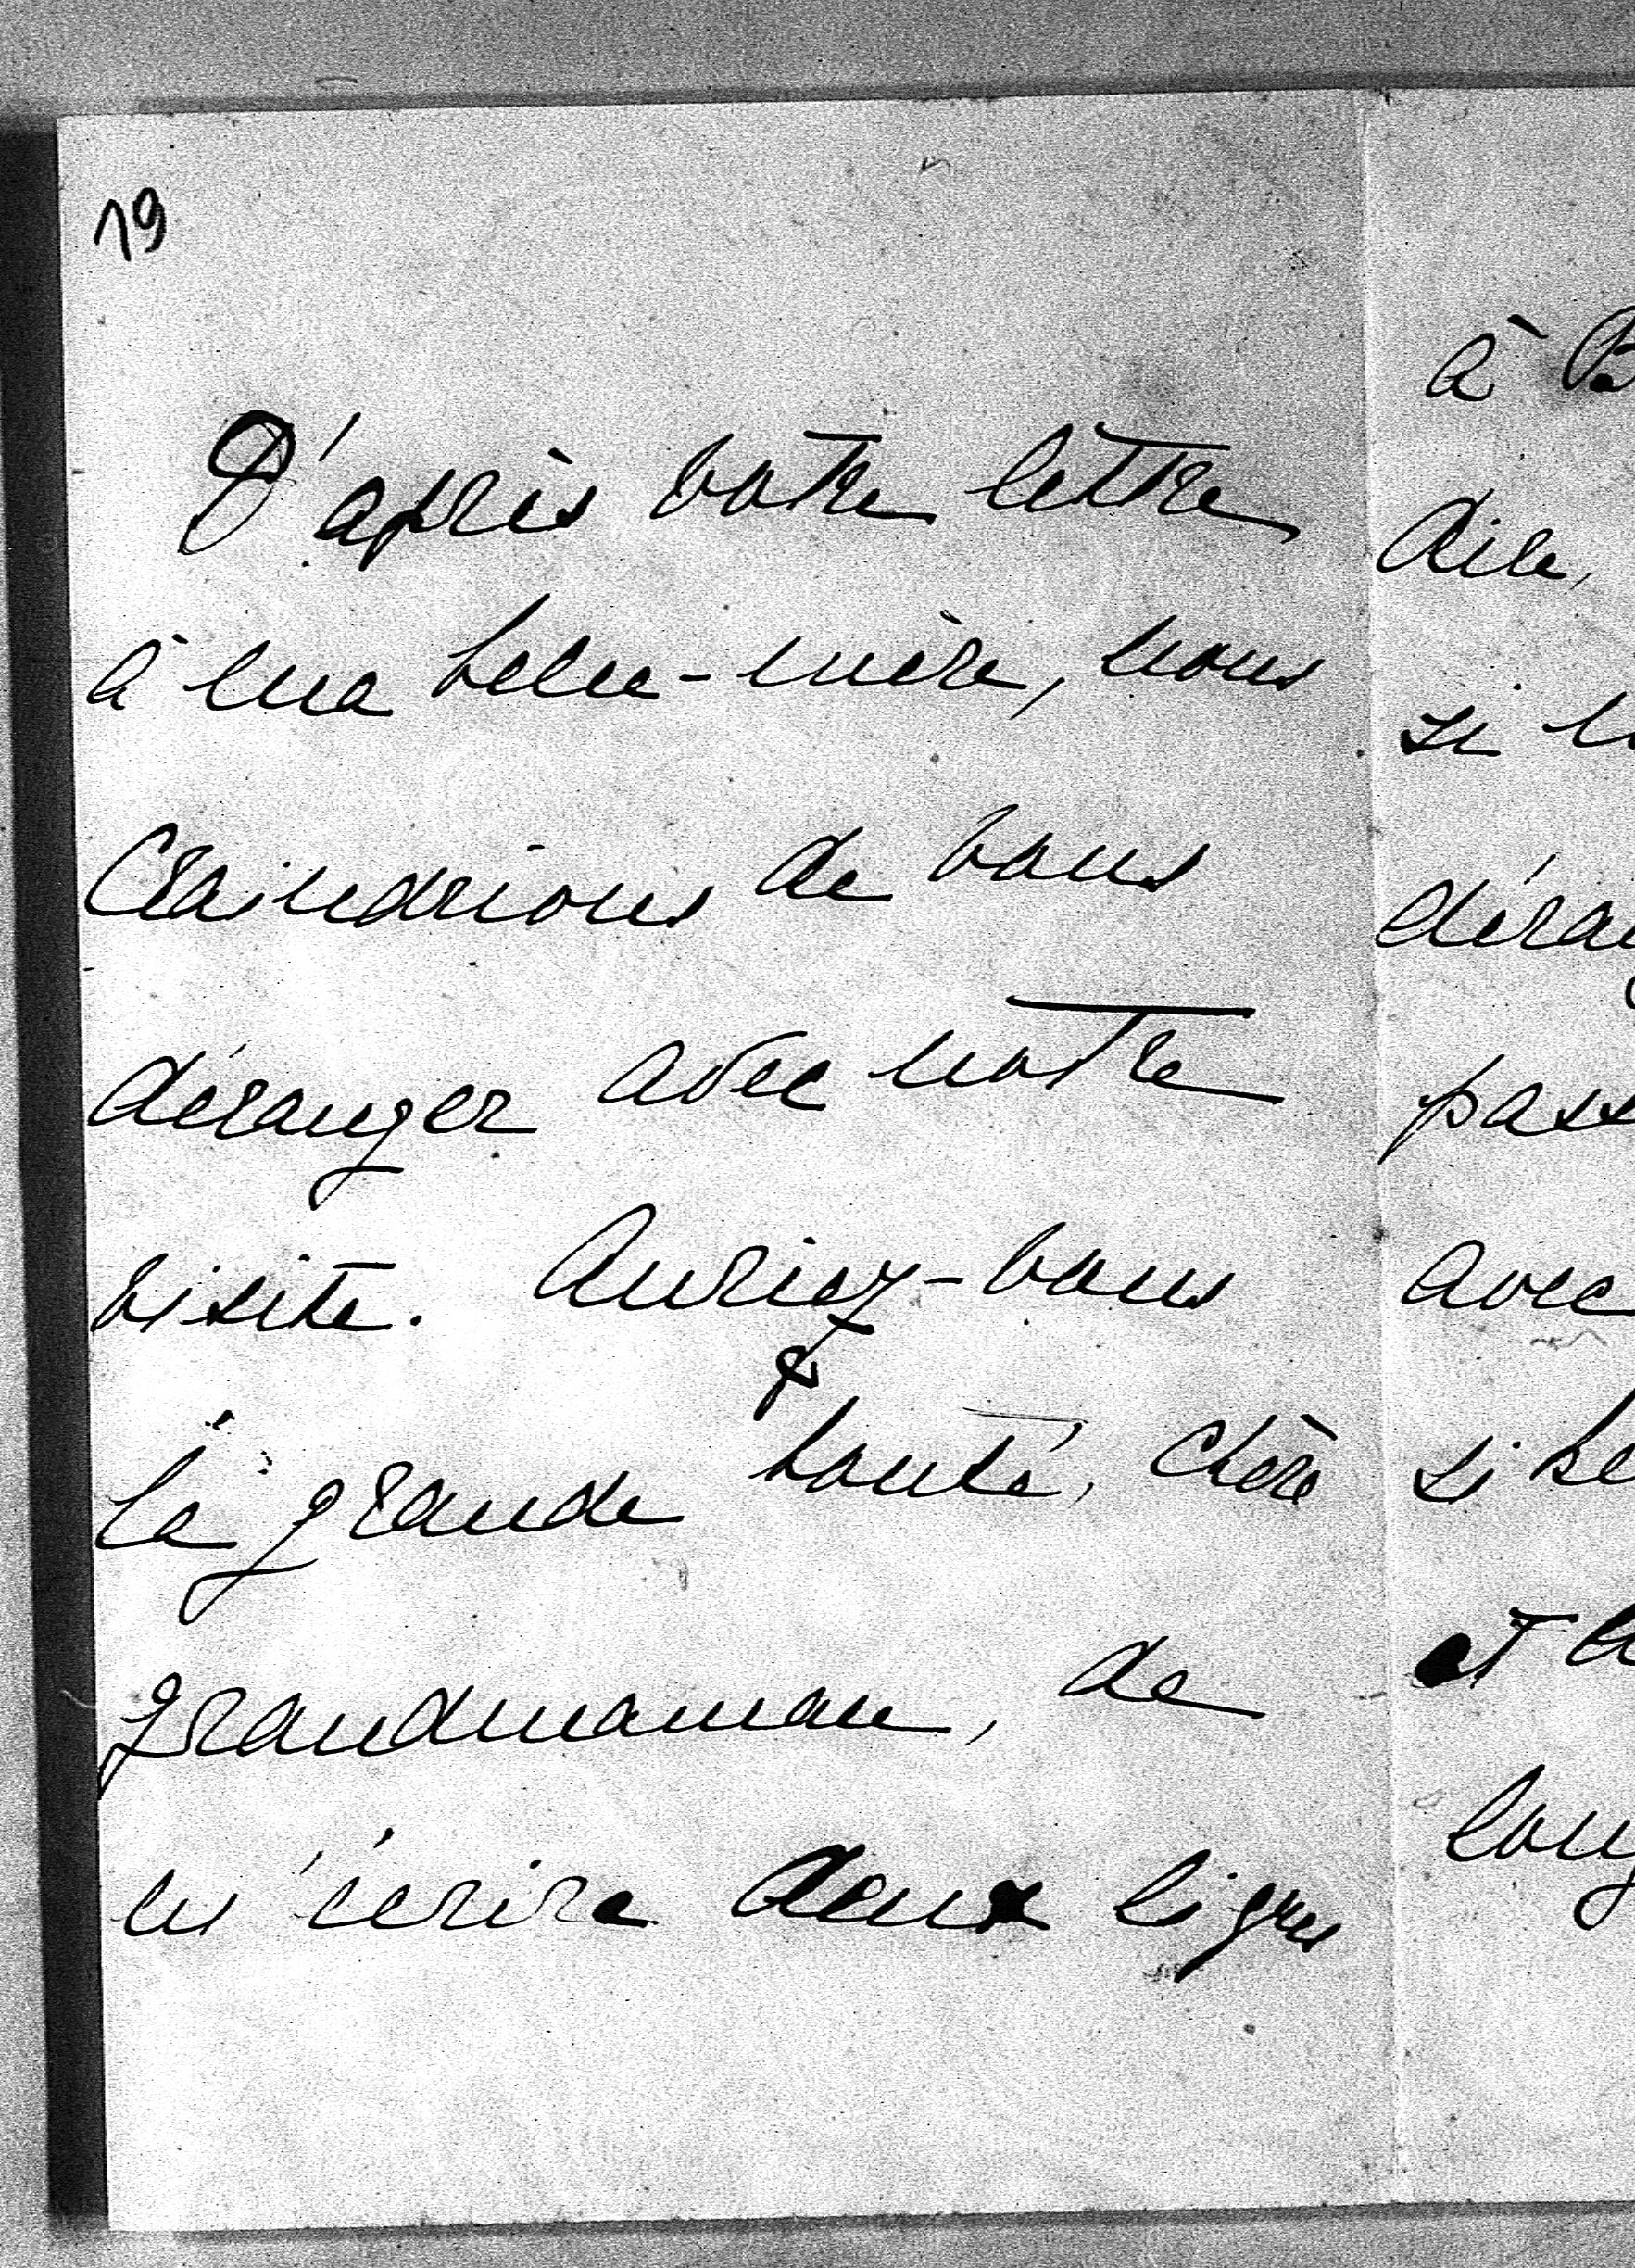 19
D'après votre lettre
à ma belle-mère, nous
craindrions de vous
déranger avec notre
visite. Auriez-vous
la grande bonté, chère
grandmaman, de
m'écrire deux lignes
à B
dire,
si
déran
pass
avec
si be
et
long